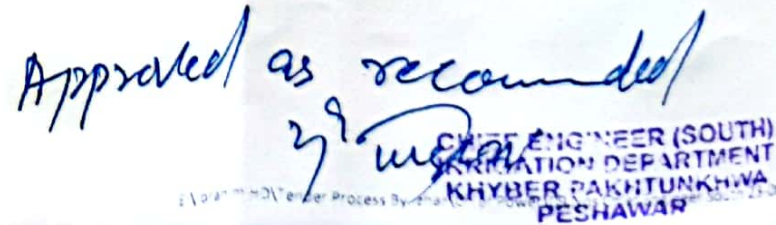 Approved as recommended
CHIEF ENGINEER (SOUTH)
IRRIGATION DEPARTMENT
KHYBER PAKHTUNKHWA
Tender Process
PESHAWAR